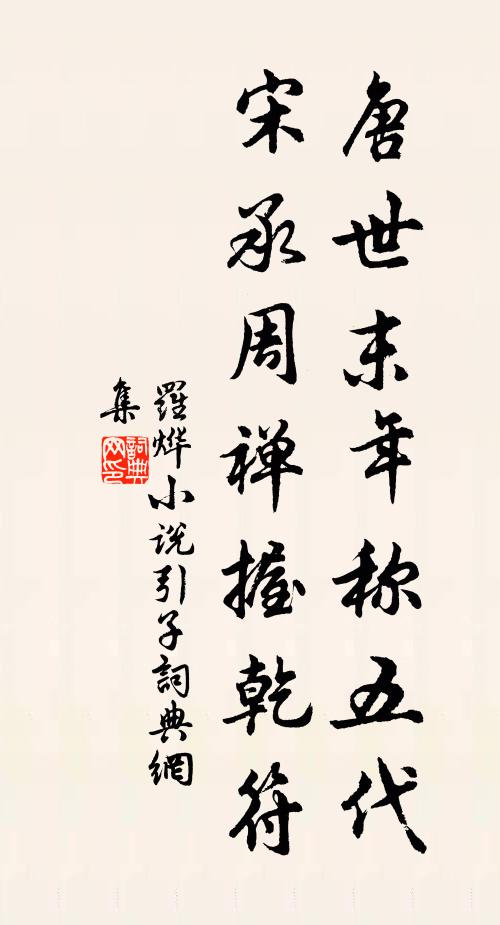 唐世末年称五代
宋承周禅握乾符
羅烨小说引子詞典網
集
詞典網印